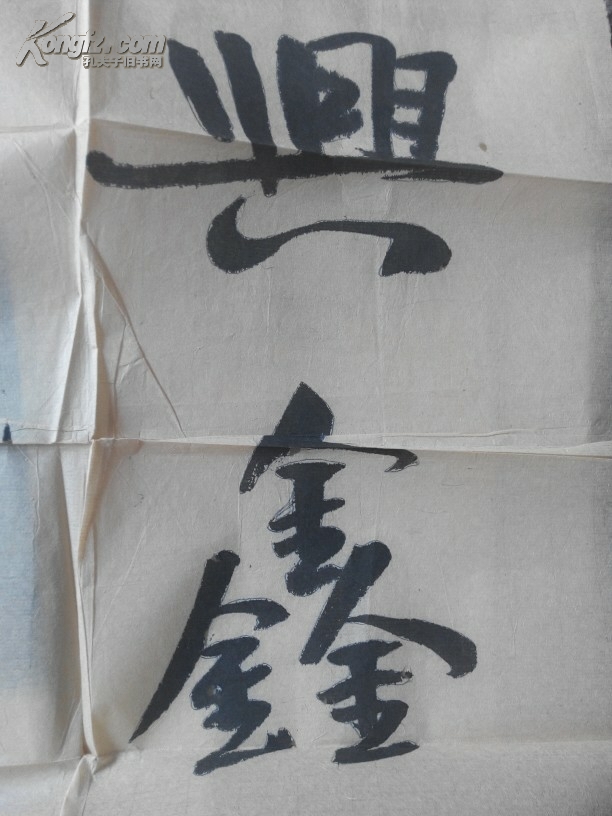 Kongfz.com
孔夫子旧书网
興
鑫